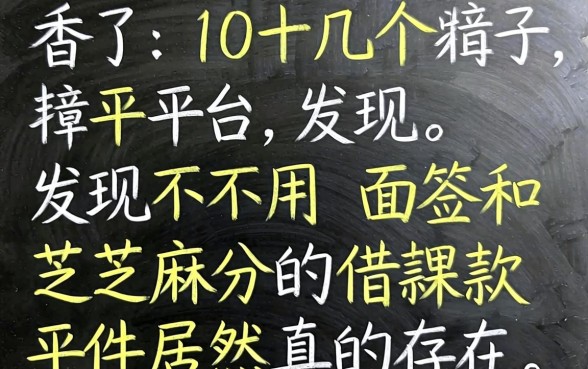 香了：10十几个子，
平平台，发现。
发现不不用 面签和
芝芝麻分的借款
平件居然真的存在。